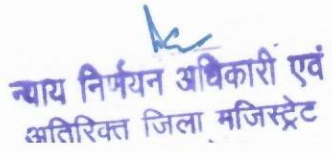 न्याय निर्णयन अधिकारी एवं
अतिरिक्त जिला मजिस्ट्रेट